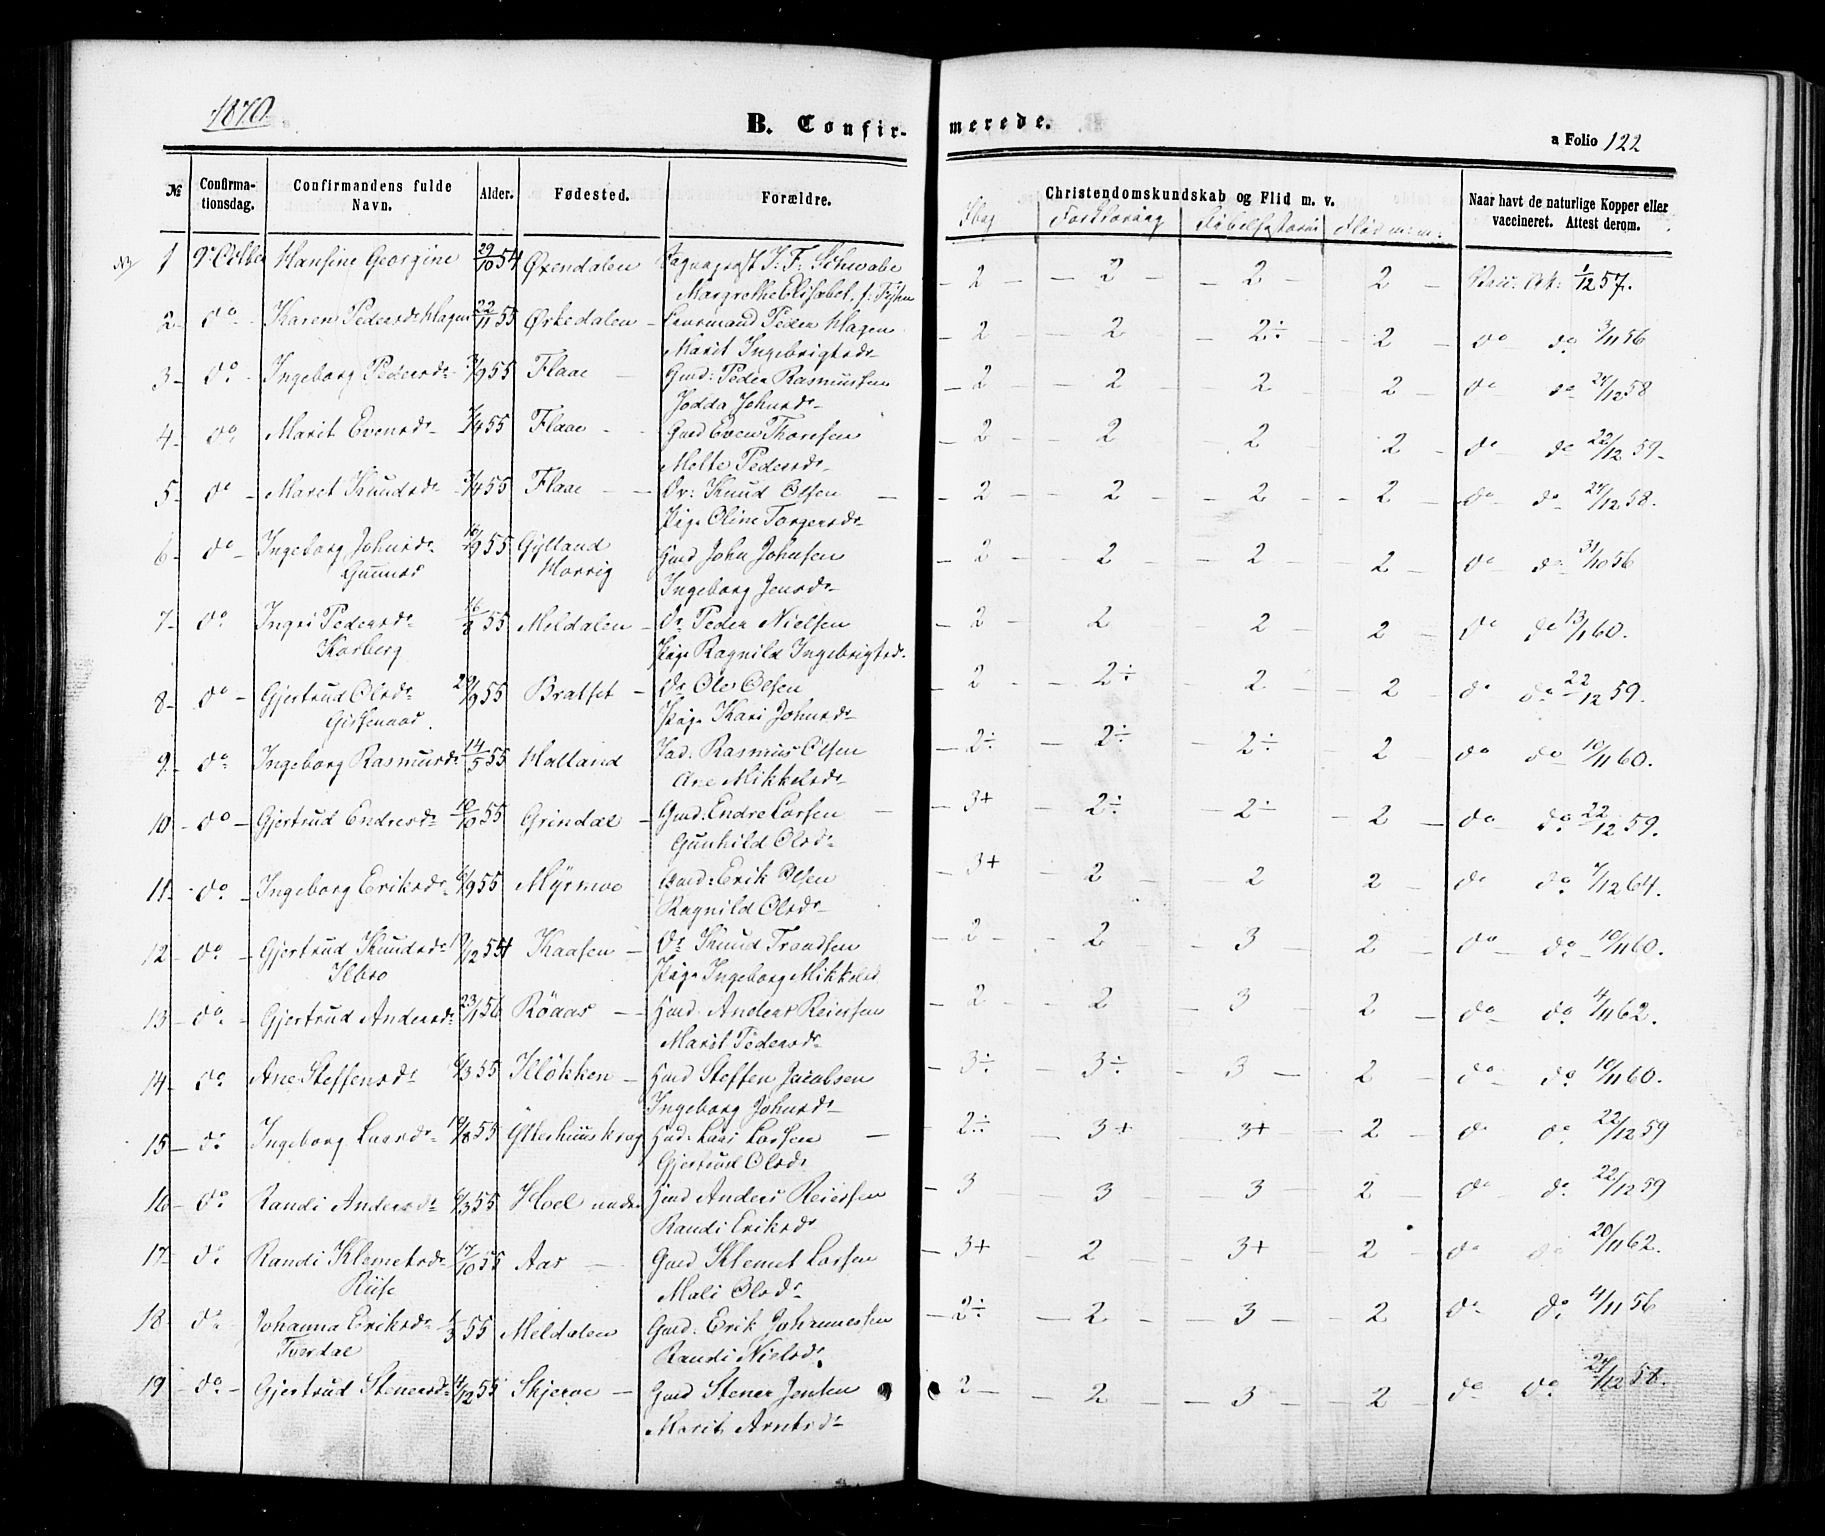 1870.
B. Confirmerede.
a Folio 122
№ Confirmationsdag. Confirmandens fulde Navn. Alder. Fødested. Forældre. Christendomskundskab og Flid m. v. Naar havt de naturlige Kopper eller vaccineret. Attest derom.
Forklaring Bibelhistorie Flid m:m:
1 Hansine Georgine 29/10 54 Øxendalen J. F. Schwabe 2 — 2 — 2 2 — 1/12 57.
Margrethe Elisabet f:
2 do Karen Pedersdr Hagen 22/11 55 Ørkedalen — Peder Hagen 2 2 2÷ 2 do do 3/11 56
Marit Ingebrigtsdr
3 do Ingeborg Pedersdr 3/9 55 Flaae Gmd: Peder Rasmussen 2 2 2 2 do do 24/12 58
Jodda Johnsdr
4 do Marit Evensdr 1/4 55 Flaae Gmd Even Thoresen 2 2 2 2 do do 22/12 59
Pedersdr
5 do Maret Knudsdr 3/4 55 Flaae Knud Olsen 2 2 2 2 do do 24/12 58.
Pige Oline Torgersdr
6 do Ingeborg Johnsdr 55 Gylland Hmd John Johnsen 2 2 2 2 do do 31/10 56
Horrig Ingeborg Jensdr
7 do Ingri Pedersdr 16/8 55 Meldalen Dr Peder Nielsen 2 2 2 2 do do 13/1 60.
Karberg Pige Ragnild Ingebrigtsd.
8 do Gjertrud Olsdr 29/9 55 Bratset Dr Ole Olsen 2 2÷ 2 2 do do 22/12 59.
Pige Kari Johnsdr
9 do Ingeborg Rasmusdr 14/5 55 Halland Rasmus Olsen 2÷ 2÷ 2÷ 2 do do 10/11 60.
Ane Mikkelsdr
10 do Gjertrud Endresdr 10/10 55 Grindal Gmd: Endre Larsen 3+ 2÷ 2÷ 2 do do 22/12 59.
Gunhild Olsdr
11 do Ingeborg Eriksdr 6/9 55 Myrmoe Gmd: Erik Olsen 3+ 2 2 2 do do 7/12 64.
Ragnild Olsdr
12 do Gjertrud Knudsdr 54 Kaasen Dr Knud Trondsen 2 2 3 2 do do 10/11 60.
Ilbro Pige Ingeborg Mikkelsd
13 do Gjertrud Andersdr 23/1 56 Röaas Hmd. Anders Reiersen 2 2 3 2 do do 4/11 62.
Marit Pedersdr
14 do Ane Steffensdr 6/3 55 Kløkken Hmd Steffen Jacobsen 3÷ 3÷ 3 2 do do 10/11 60.
Ingeborg Johnsdr
15 do Ingeborg Larsdr 19/8 55 Ytterhuuskrog Lars Larsen 2÷ 3+ 3+ 2 do do 22/12 59
Gjertrud Olsdr
16 do Randi Andersdr 6/3 55 Hoel Hmd Anders Reiersen 3 3 3 2 do do 22/12 59
Randi Eriksdr
17 do Randi Klemetsdr 17/10 55 Aas Gmd Klemet Larsen 3+ 2 3+ 2 do do 20/11 62.
Riise Mali Olsdr
18 do Johanna Eriksdr 1/3 55 Meldalen Gmd: Erik Johannessen 2÷ 2 3 2 do do 4/11 56
Tverdal Randi Nielsdr
19 do Gjertrud Stenersdr 4/12 55 Skjerve Gmd Stener Jensen 2 2 3 2 do do 24/12 58.
Marit Arntsdr